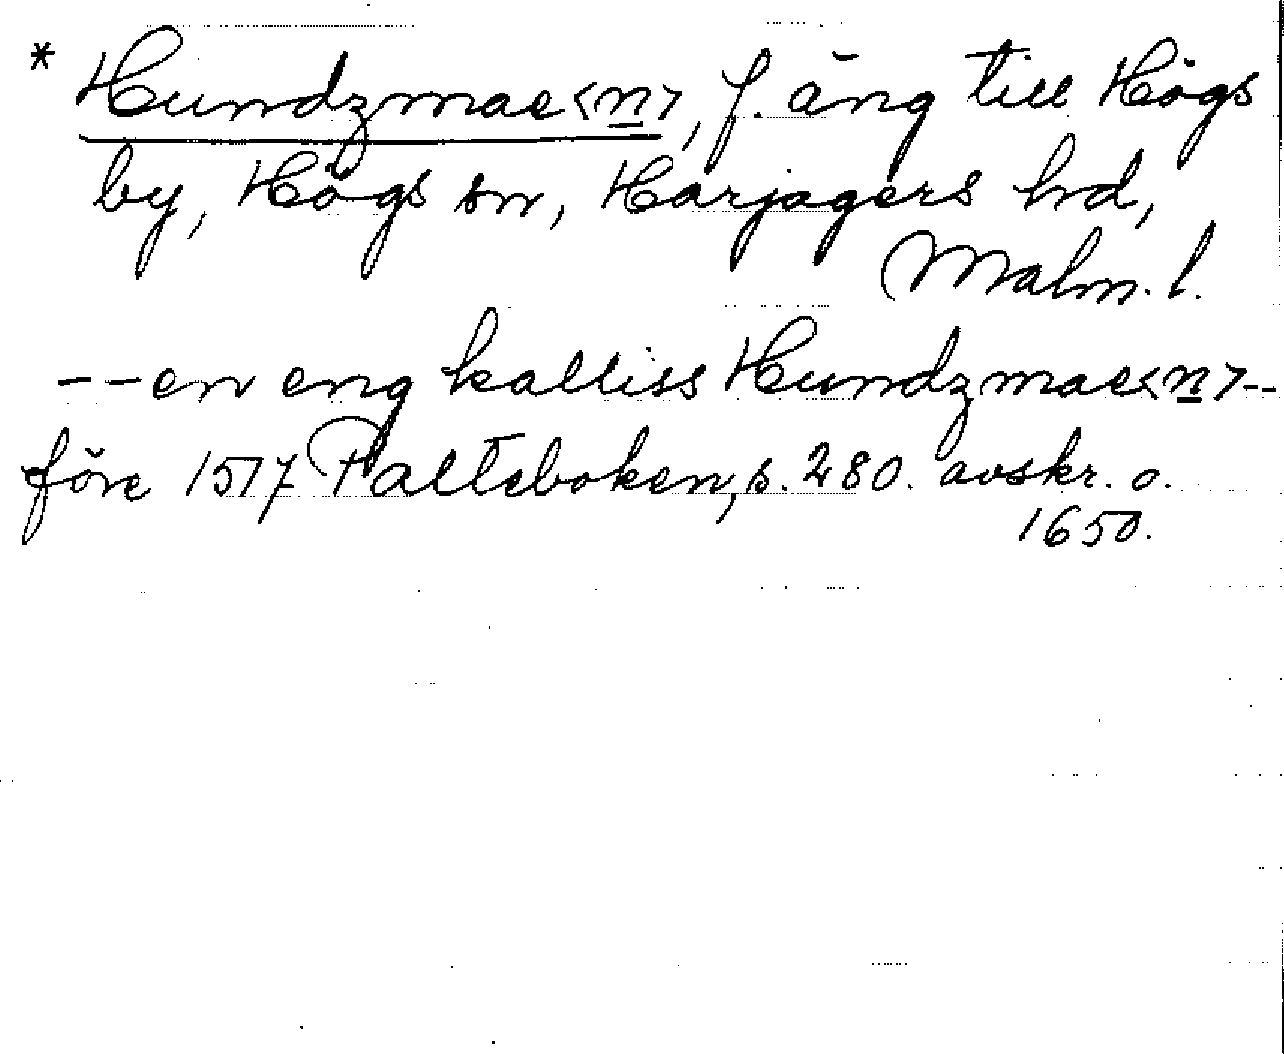 * Hundzmae<n>, f. äng till Högs
by, Högs sn, Harjagers hd,
Malm. l.
-- en eng kalliss Hundzmae<n> --
före 1517 Palteboken, s. 280. avskr. o.
1650.